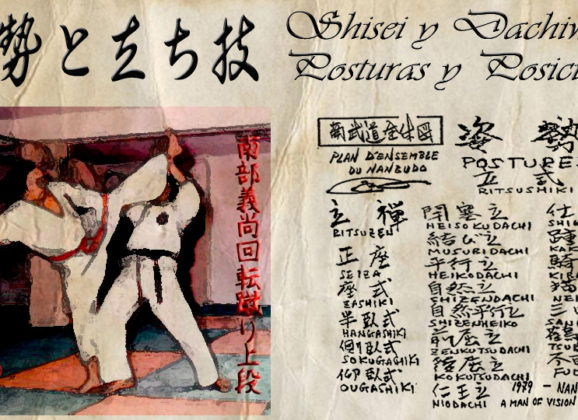 勢と立ち技
Shisei y Dachiw
Posturas y Posici
南部義尚回転蹴り上段
南武道全体図
PLAN D'ENSEMBLE
DU NANBUDO
姿勢
POSTURE
立式
RITSUSHIKI
立禅
RITSUZEN
正座
SEIZA
座式
ZASHIKI
半臥式
HANGASHIKI
側臥式
SOKUGASHIKI
仰臥式
OUGASHIKI
閉塞立
HEISOKUDACHI
結び立
MUSUBIDACHI
平行立
HEIKODACHI
自然立
SHIZENDACHI
自然平行立
SHIZENHEIKO
前屈立
ZENKUTSUDACHI
後屈立
KOKUTSUDACHI
仁王立
NIODACHI
1979 - NAN
A MAN OF VISION